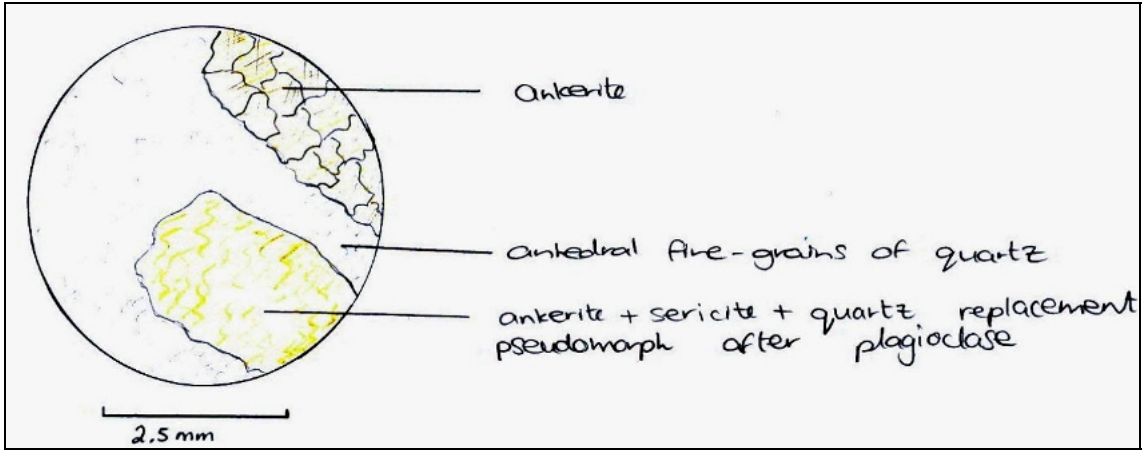 ankerite
anhedral fine-grains of quartz
ankerite + sericite + quartz replacement
pseudomorph after plagioclase
2.5 mm